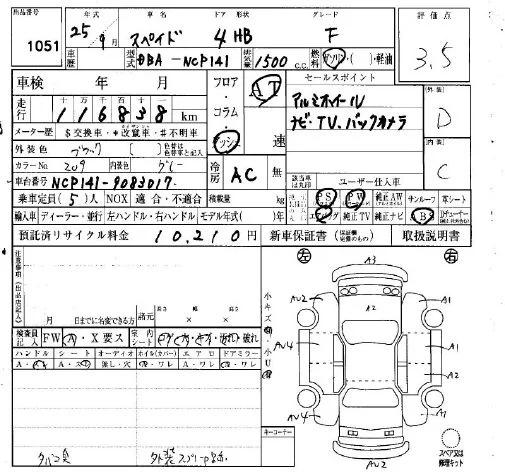 出品番号 1051
年式 25年 9月
車名 スペイド
ドア 形状 4HB
グレード F
評価点 3.5
車歴
型式 DBA-NCP141
排気量 1500 c.c.
燃料 ガソリン・( )・軽油
車検 年 月
フロア・コラム・
AT
セールスポイント
アルミホイール
ナビ・TV、バックカメラ
外装 D
内装 C
走行 十 万 千 百 十 一
116838 km
速
メーター歴 $ 交換車・*改竄車・#不明車
外装色 ブラック
カラーNo. 209 内装色 グレー
冷房 AC 無
車台番号 NCP141-9083017
ユーザー仕入車
乗車定員(5)人 NOX 適合・不適合
積載量 kg
PS PW 純正AW サンルーフ 革シート
輸入車 ディーラー・並行 左ハンドル・右ハンドル モデル年式( )年
エアバッグ 純正TV 純正ナビ ABS
預託済リサイクル料金 10,210円
新車保証書 取扱説明書
注意事項(出品店記入)
左 右
A3
AU2 A2 A1
AU4 A1
A2
AU4 A1
AU2
月 日までに名変できる方
諸元 長さ 幅 高さ
小キズ 小凹
検査員記入 FW A・X 要ス 室内シート
・破れ
ハンドル シート オーディオ ホイル(カバー) エアロ ドアミラー
無し・穴
キーコーナー
タバコ臭
外装スプレー
スペア又は
修理キット